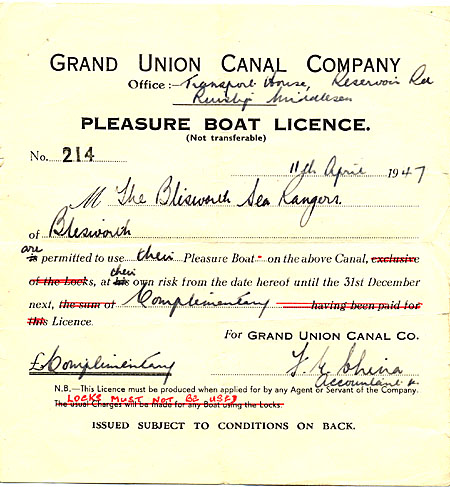 GRAND UNION CANAL COMPANY
Office:— Transport House, Reservoir Rd
Ruislip Middlesex
PLEASURE BOAT LICENCE.
(Not transferable)
No. 214
11th April 1947
M The Blisworth Sea Rangers.
of Blisworth
are
is permitted to use their Pleasure Boat on the above Canal, exclusive
of the Locks, at their his own risk from the date hereof until the 31st December
next, the sum of Complimentary having been paid for
this Licence.
For GRAND UNION CANAL CO.
£Complimentary
Accountant
N.B.—This Licence must be produced when applied for by any Agent or Servant of the Company.
LOCKS MUST NOT BE USED
The usual Charges will be made for any Boat using the Locks.
ISSUED SUBJECT TO CONDITIONS ON BACK.